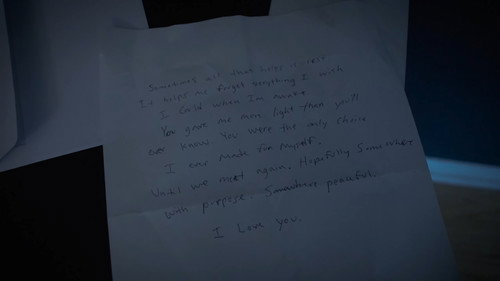 Sometimes all that helps is rest
It helps me forget everything I wish
I could when I'm awake
You gave me more light than you'll
ever know. You were the only choice
I ever made for myself.
Until we meet again. Hopefully Somewhere
with purpose. Somewhere peaceful.
I Love you.